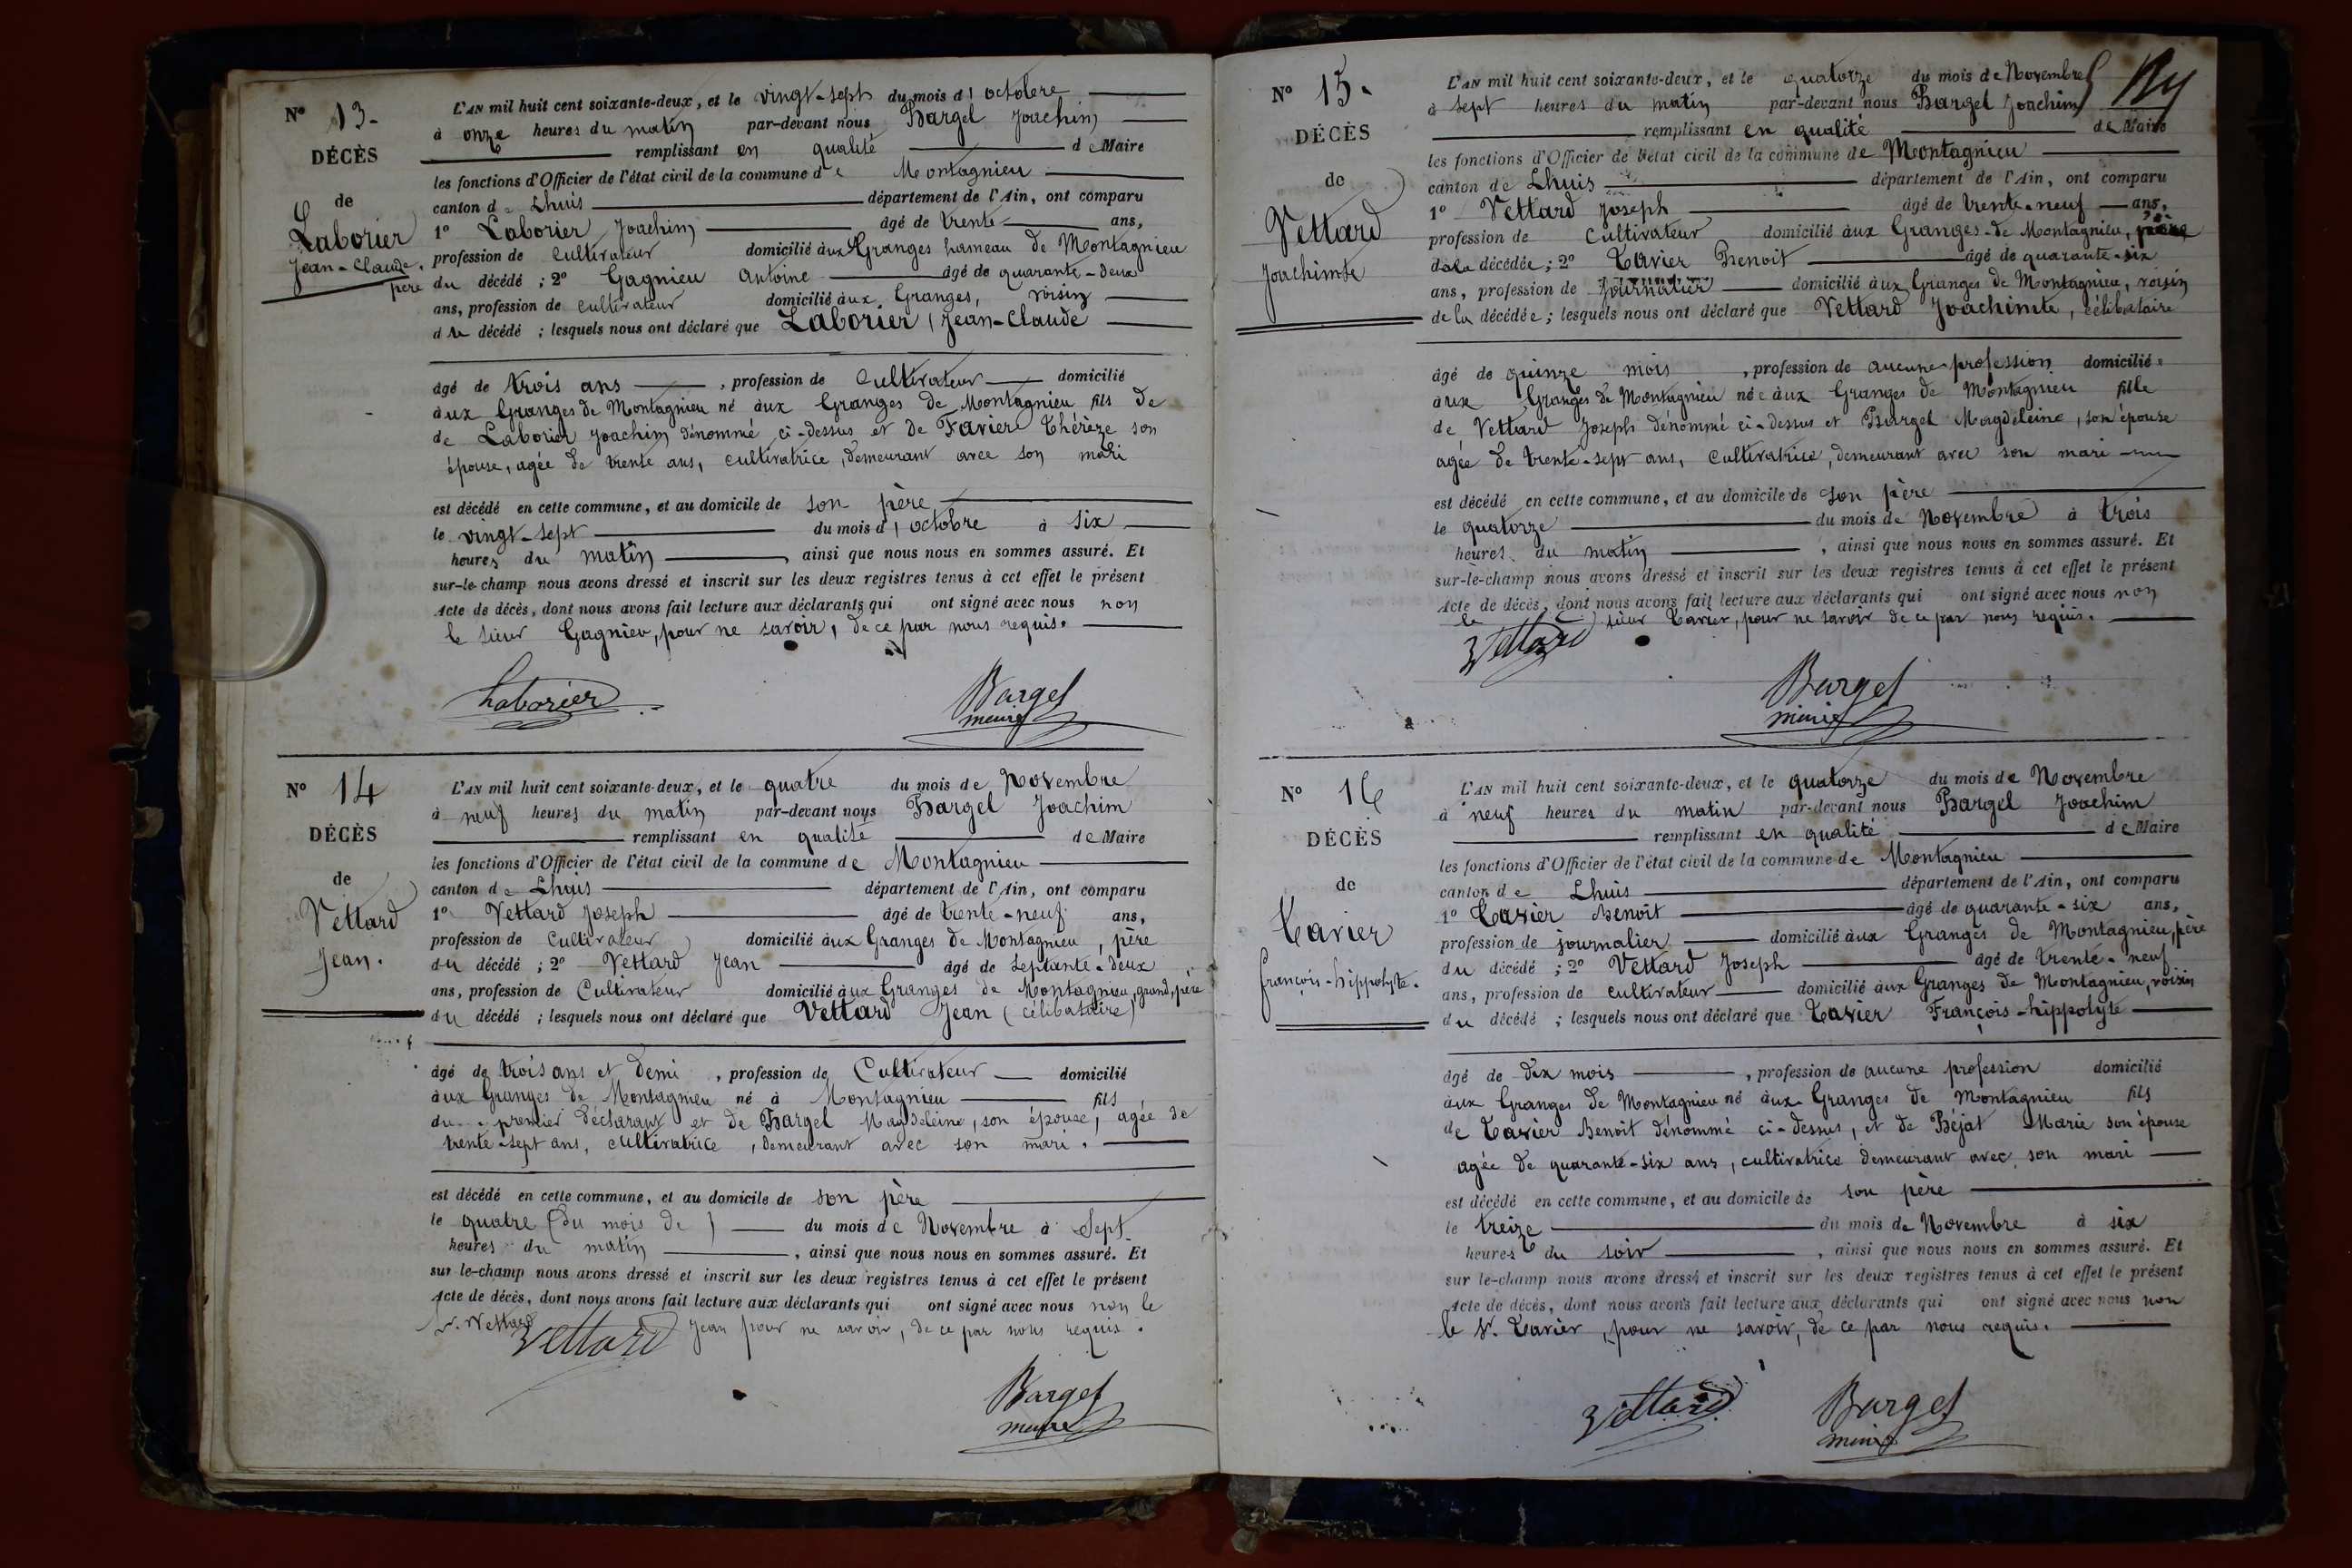 N° 13.
DÉCÈS
de
Laborier
Jean-Claude.
père
L'AN mil huit cent soixante-deux, et le vingt-sept du mois d'octobre
à onze heures du matin par-devant nous Bargel Joachim
remplissant en qualité de Maire
les fonctions d'Officier de l'état civil de la commune de Montagnieu
canton de Lhuis département de l'Ain, ont comparu
1° Laborier Joachim âgé de trente ans,
profession de cultivateur domicilié aux Granges hameau de Montagnieu
du décédé ; 2° Gagnieu Antoine âgé de quarante-deux
ans, profession de cultivateur domicilié aux Granges, voisin
du décédé ; lesquels nous ont déclaré que Laborier Jean-Claude
âgé de trois ans , profession de Cultivateur domicilié
aux Granges de Montagnieu né aux Granges de Montagnieu fils de
de Laborier Joachim dénommé ci-dessus et de Favier Thérèze son
épouse, agée de trente ans, cultivatrice, demeurant avec son mari
est décédé en cette commune, et au domicile de son père
le vingt-sept du mois d'octobre à six
heures du matin , ainsi que nous nous en sommes assuré. Et
sur-le-champ nous avons dressé et inscrit sur les deux registres tenus à cet effet le présent
Acte de décès, dont nous avons fait lecture aux déclarants qui ont signé avec nous non
le sieur Gagnieu, pour ne savoir, de ce par nous requis.
Laborier
Bargel
maire
N° 14
DÉCÈS
de
Vettard
Jean.
L'AN mil huit cent soixante-deux, et le quatre du mois de Novembre
à neuf heures du matin par-devant nous Bargel Joachim
remplissant en qualité de Maire
les fonctions d'Officier de l'état civil de la commune de Montagnieu
canton de Lhuis département de l'Ain, ont comparu
1° Vettard Joseph âgé de trente-neuf ans,
profession de Cultivateur domicilié aux Granges de Montagnieu, père
du décédé ; 2° Vettard Jean âgé de septante-deux
ans, profession de Cultivateur domicilié aux Granges de Montagnieu, grand, père
du décédé ; lesquels nous ont déclaré que Vettard Jean (célibataire)
âgé de trois ans et demi , profession de Cultivateur domicilié
aux Granges de Montagnieu né à Montagnieu fils
du premier déclarant et de Bargel Magdeleine, son épouse, agée de
trente-sept ans, cultivatrice, demeurant avec son mari.
est décédé en cette commune, et au domicile de son père
le quatre (du mois de) du mois de Novembre à sept
heures du matin , ainsi que nous nous en sommes assuré. Et
sur le-champ nous avons dressé et inscrit sur les deux registres tenus à cet effet le présent
Acte de décès, dont nous avons fait lecture aux déclarants qui ont signé avec nous non le
Sr. Vettard Jean pour ne savoir, de ce par nous requis.
Vettard
Bargel
maire
N° 15.
DÉCÈS
de
Vettard
Joachimte
L'AN mil huit cent soixante-deux, et le quatorze du mois de Novembre
à sept heures du matin par-devant nous Bargel Joachim
remplissant en qualité de Maire
les fonctions d'Officier de l'état civil de la commune de Montagnieu
canton de Lhuis département de l'Ain, ont comparu
1° Vettard Joseph âgé de trente-neuf ans,
profession de Cultivateur domicilié aux Granges de Montagnieu, père
de la décédée ; 2° Tavier Benoit âgé de quarante-six
ans, profession de Journalier domicilié aux Granges de Montagnieu, voisin
de la décédée ; lesquels nous ont déclaré que Vettard Joachimte, célibataire
âgé de quinze mois , profession de aucune profession domiciliée
aux Granges de Montagnieu née aux Granges de Montagnieu fille
de Vettard Joseph dénommé ci-dessus et Bargel Magdeleine, son épouse
agée de trente-sept ans, cultivatrice, demeurant avec son mari
est décédé en cette commune, et au domicile de son père
le quatorze du mois de Novembre à trois
heures du matin , ainsi que nous nous en sommes assuré. Et
sur-le-champ nous avons dressé et inscrit sur les deux registres tenus à cet effet le présent
Acte de décès, dont nous avons fait lecture aux déclarants qui ont signé avec nous non
le sieur Tavier, pour ne savoir de ce par nous requis.
Vettard
Bargel
maire
N° 16
DÉCÈS
de
Tavier
françois-hippolyte.
L'AN mil huit cent soixante-deux, et le quatorze du mois de Novembre
à neuf heures du matin par-devant nous Bargel Joachim
remplissant en qualité de Maire
les fonctions d'Officier de l'état civil de la commune de Montagnieu
canton de Lhuis département de l'Ain, ont comparu
1° Tavier Benoit âgé de quarante-six ans,
profession de journalier domicilié aux Granges de Montagnieu, père
du décédé ; 2° Vettard Joseph âgé de trente-neuf
ans, profession de cultivateur domicilié aux Granges de Montagnieu, voisin
du décédé ; lesquels nous ont déclaré que Tavier François-hippolyte
âgé de dix mois , profession de aucune profession domicilié
aux Granges de Montagnieu né aux Granges de Montagnieu fils
de Tavier Benoit dénommé ci-dessus, et de Béjat Marie son épouse
agée de quarante-six ans, cultivatrice demeurant avec son mari
est décédé en cette commune, et au domicile de son père
le treize du mois de Novembre à six
heures du soir , ainsi que nous nous en sommes assuré. Et
sur le-champ nous avons dressé et inscrit sur les deux registres tenus à cet effet le présent
Acte de décès, dont nous avons fait lecture aux déclarants qui ont signé avec nous non
le Sr. Tavier, pour ne savoir, de ce par nous requis.
Vettard
Bargel
maire